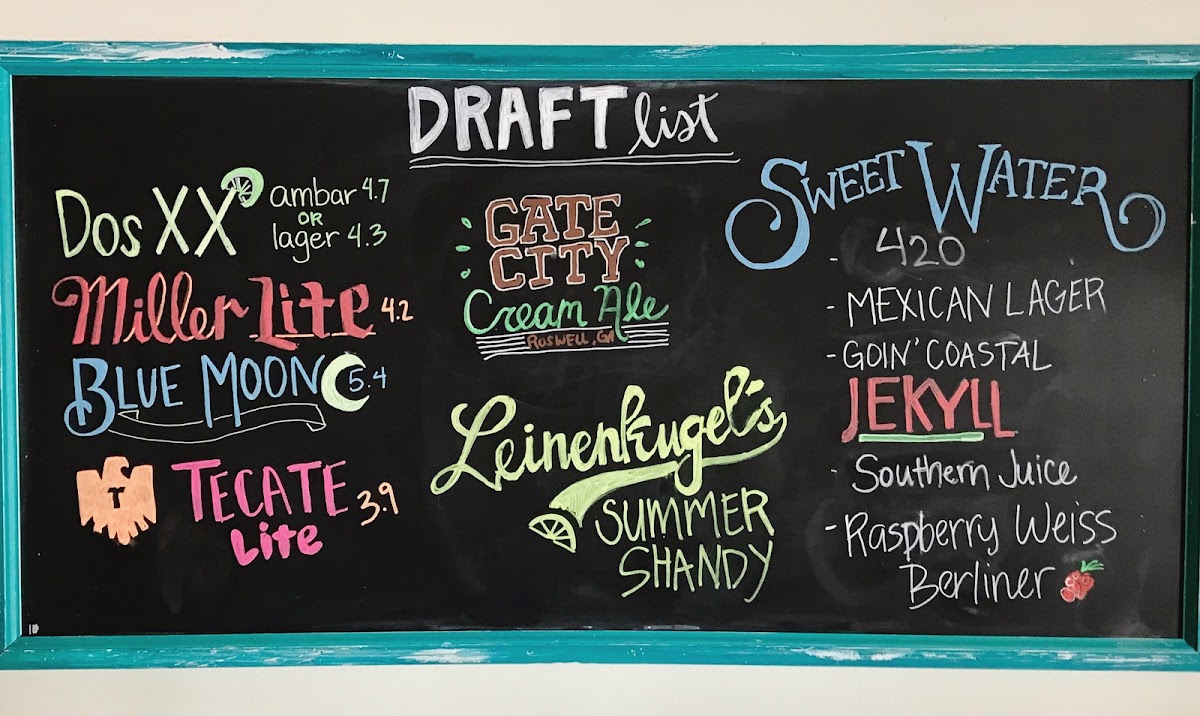 DRAFT list
Dos XX ambar 4.7
OR
lager 4.3
Miller Lite 4.2
BLUE MOON 5.4
T
TECATE 3.9
Lite
GATE
CITY
Cream Ale
ROSWELL, GA
Leinenkugel's
SUMMER
SHANDY
SWEET WATER
- 420
- MEXICAN LAGER
- GOIN' COASTAL
JEKYLL
- Southern Juice
- Raspberry Weiss
Berliner